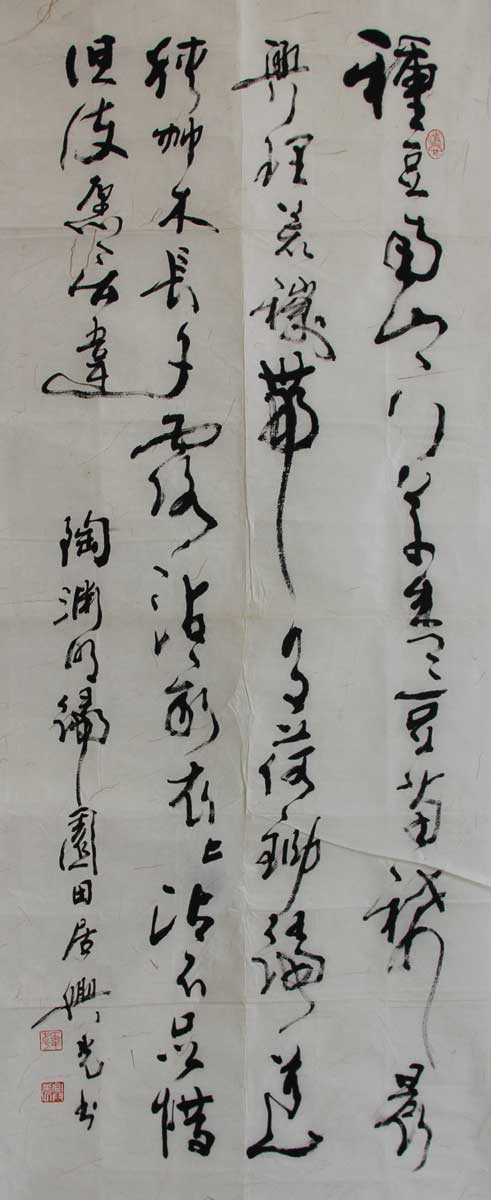 種豆南山下草盛豆苗稀晨
興理荒穢帶月荷鋤歸道
狹艸木長夕露沾我衣〻沾不足惜
但使愿无違
陶渊明歸園田居興光书